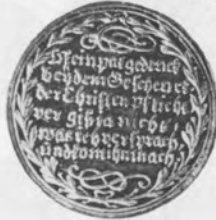 Mein pat gedenck
bey dem Geschenck
der Christen pflicht
ver giß ia nicht
was ich versprach
und kom ihm nach.